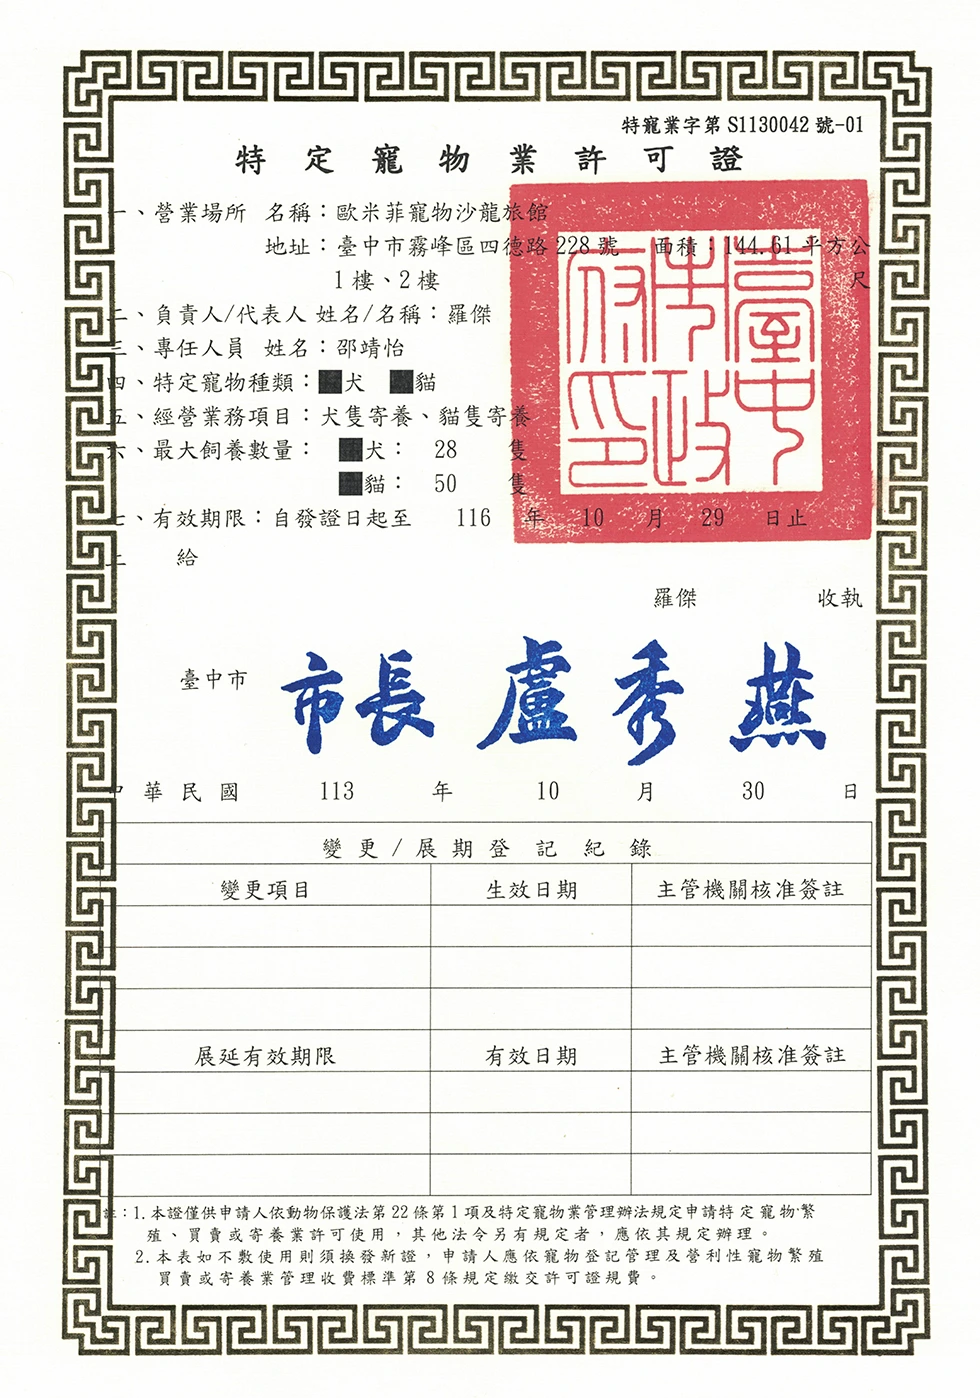 特寵業字第 S1130042 號-01
特定寵物業許可證
一、營業場所 名稱：歐米菲寵物沙龍旅館
地址：臺中市霧峰區四德路 228 號 面積：144.61 平方公尺
1 樓、2 樓
二、負責人/代表人 姓名/名稱：羅傑
三、專任人員 姓名：邵靖怡
四、特定寵物種類：■犬 ■貓
五、經營業務項目：犬隻寄養、貓隻寄養
六、最大飼養數量： ■犬： 28 隻
■貓： 50 隻
七、有效期限：自發證日起至 116 年 10 月 29 日止
上 給
羅傑 收執
臺中市 市長 盧秀燕
臺中市政府印
中華民國 113 年 10 月 30 日
變更/展期登記紀錄
變更項目 生效日期 主管機關核准簽註
展延有效期限 有效日期 主管機關核准簽註
註：1.本證僅供申請人依動物保護法第 22 條第 1 項及特定寵物業管理辦法規定申請特定寵物繁
殖、買賣或寄養業許可使用，其他法令另有規定者，應依其規定辦理。
2.本表如不敷使用則須換發新證，申請人應依寵物登記管理及營利性寵物繁殖
買賣或寄養業管理收費標準第 8 條規定繳交許可證規費。